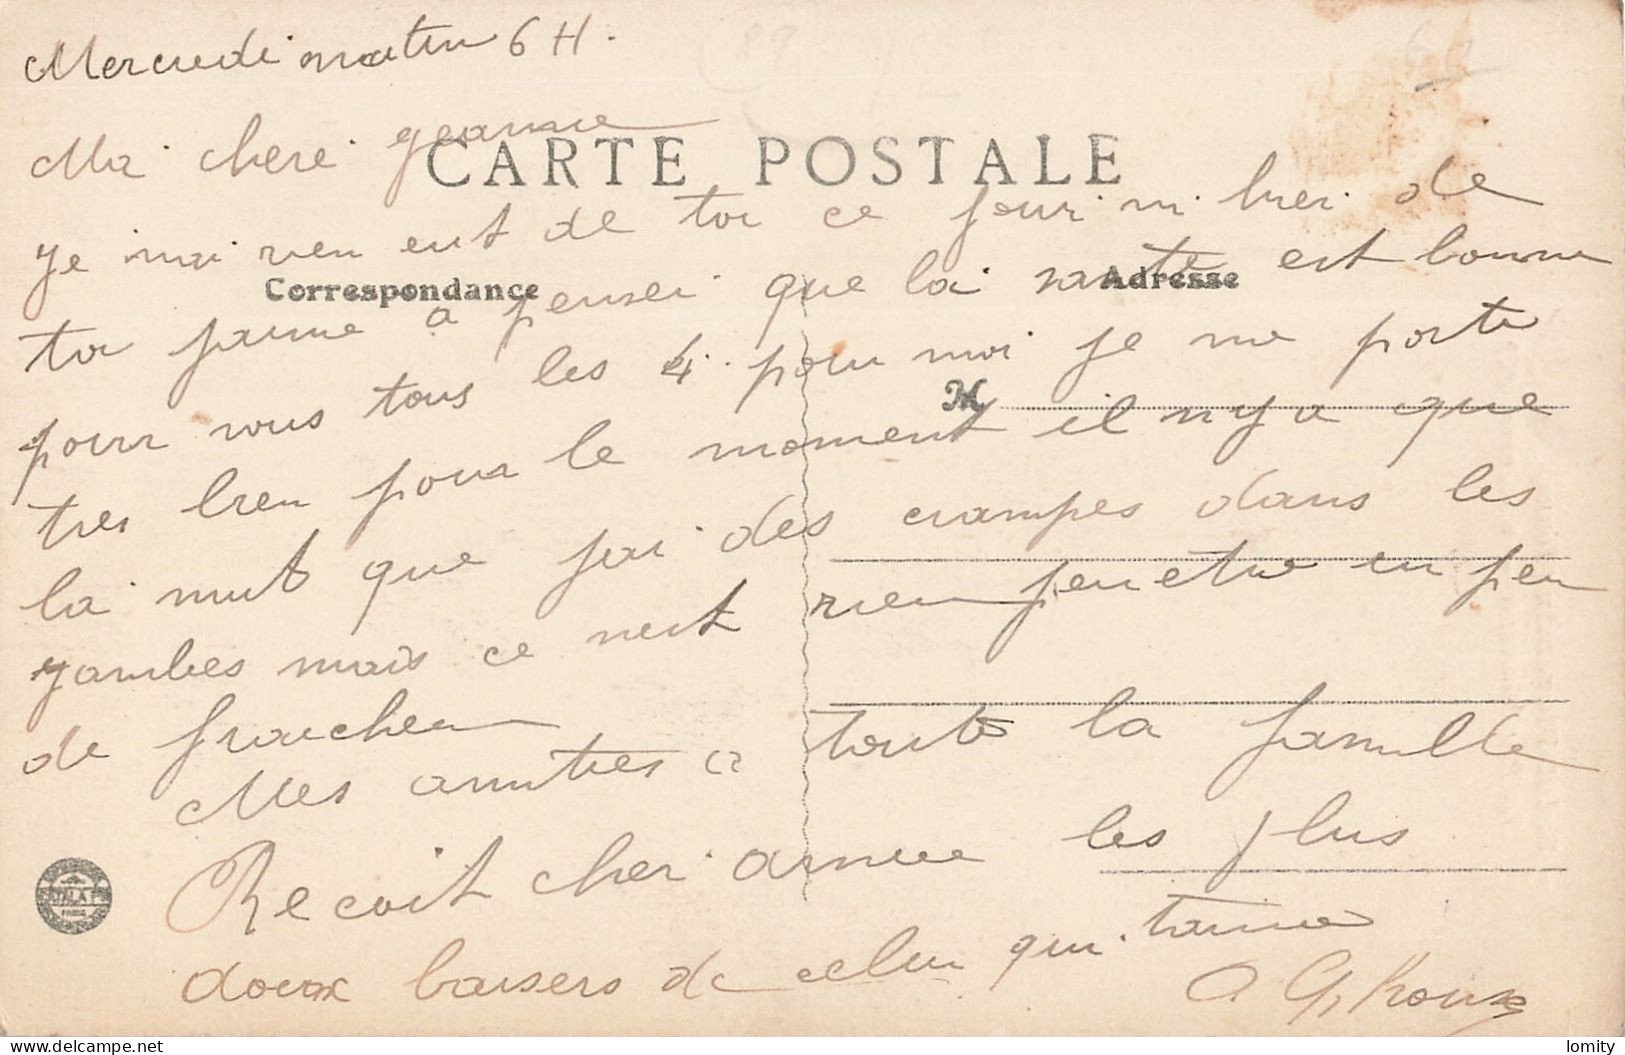 Mercredi matin 6 H.
CARTE POSTALE
Ma cheri geanne
je mai rien eut de toi ce jour. m. brei. de
Correspondance
Adresse
toi jaime a penser que la sante est bonne
pour vous tous les 4. pour moi je me porte
M
tres bien pour le moment il n y a que
la nuit que jai des crampes dans les
gambes mais ce nest rien peu etre un peu
de fraicheur
Mes amities a toute la famille
Recoit cher amie les plus
doux baisers de celui qui. taime
A G,
PARIS
lomity